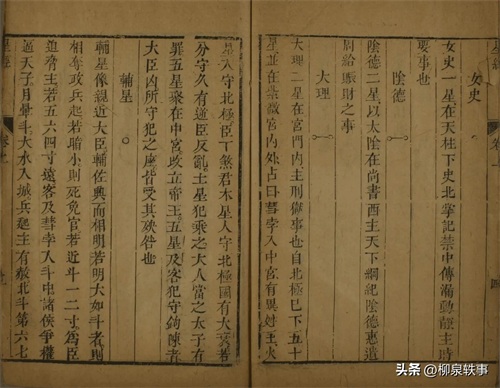 女史
女史一星在天柱下史北掌記禁中傳漏動靜主時
要事也
陰德
陰德二星以太陰在尚書西主天下綱紀陰德惠遺
周給賑財之事
大理
大理二星在宮門內主刑獄事也自北極巳下五十
星並在紫微宮內外占曰彗孛入中宮有異王火
星入守北極臣丁煞君木星入守北極國有大喪若
分守久有逆臣反亂土星犯乘之大人當之太子有
罪五星聚在中宮改立帝王五星及客犯守鉤陳者
大臣凶所守犯之座皆受其殃咎也
輔星
輔星像親近大臣輔佐興而相明若明大如斗者則
相奪政兵起若暗小則死免官若近斗一二寸為臣
迫脅主若五六四寸遠 彗孛入斗中諸侯爭權
逼天子月暈斗大水入城兵起主有赦北斗第六七
头条 @柳泉轶事